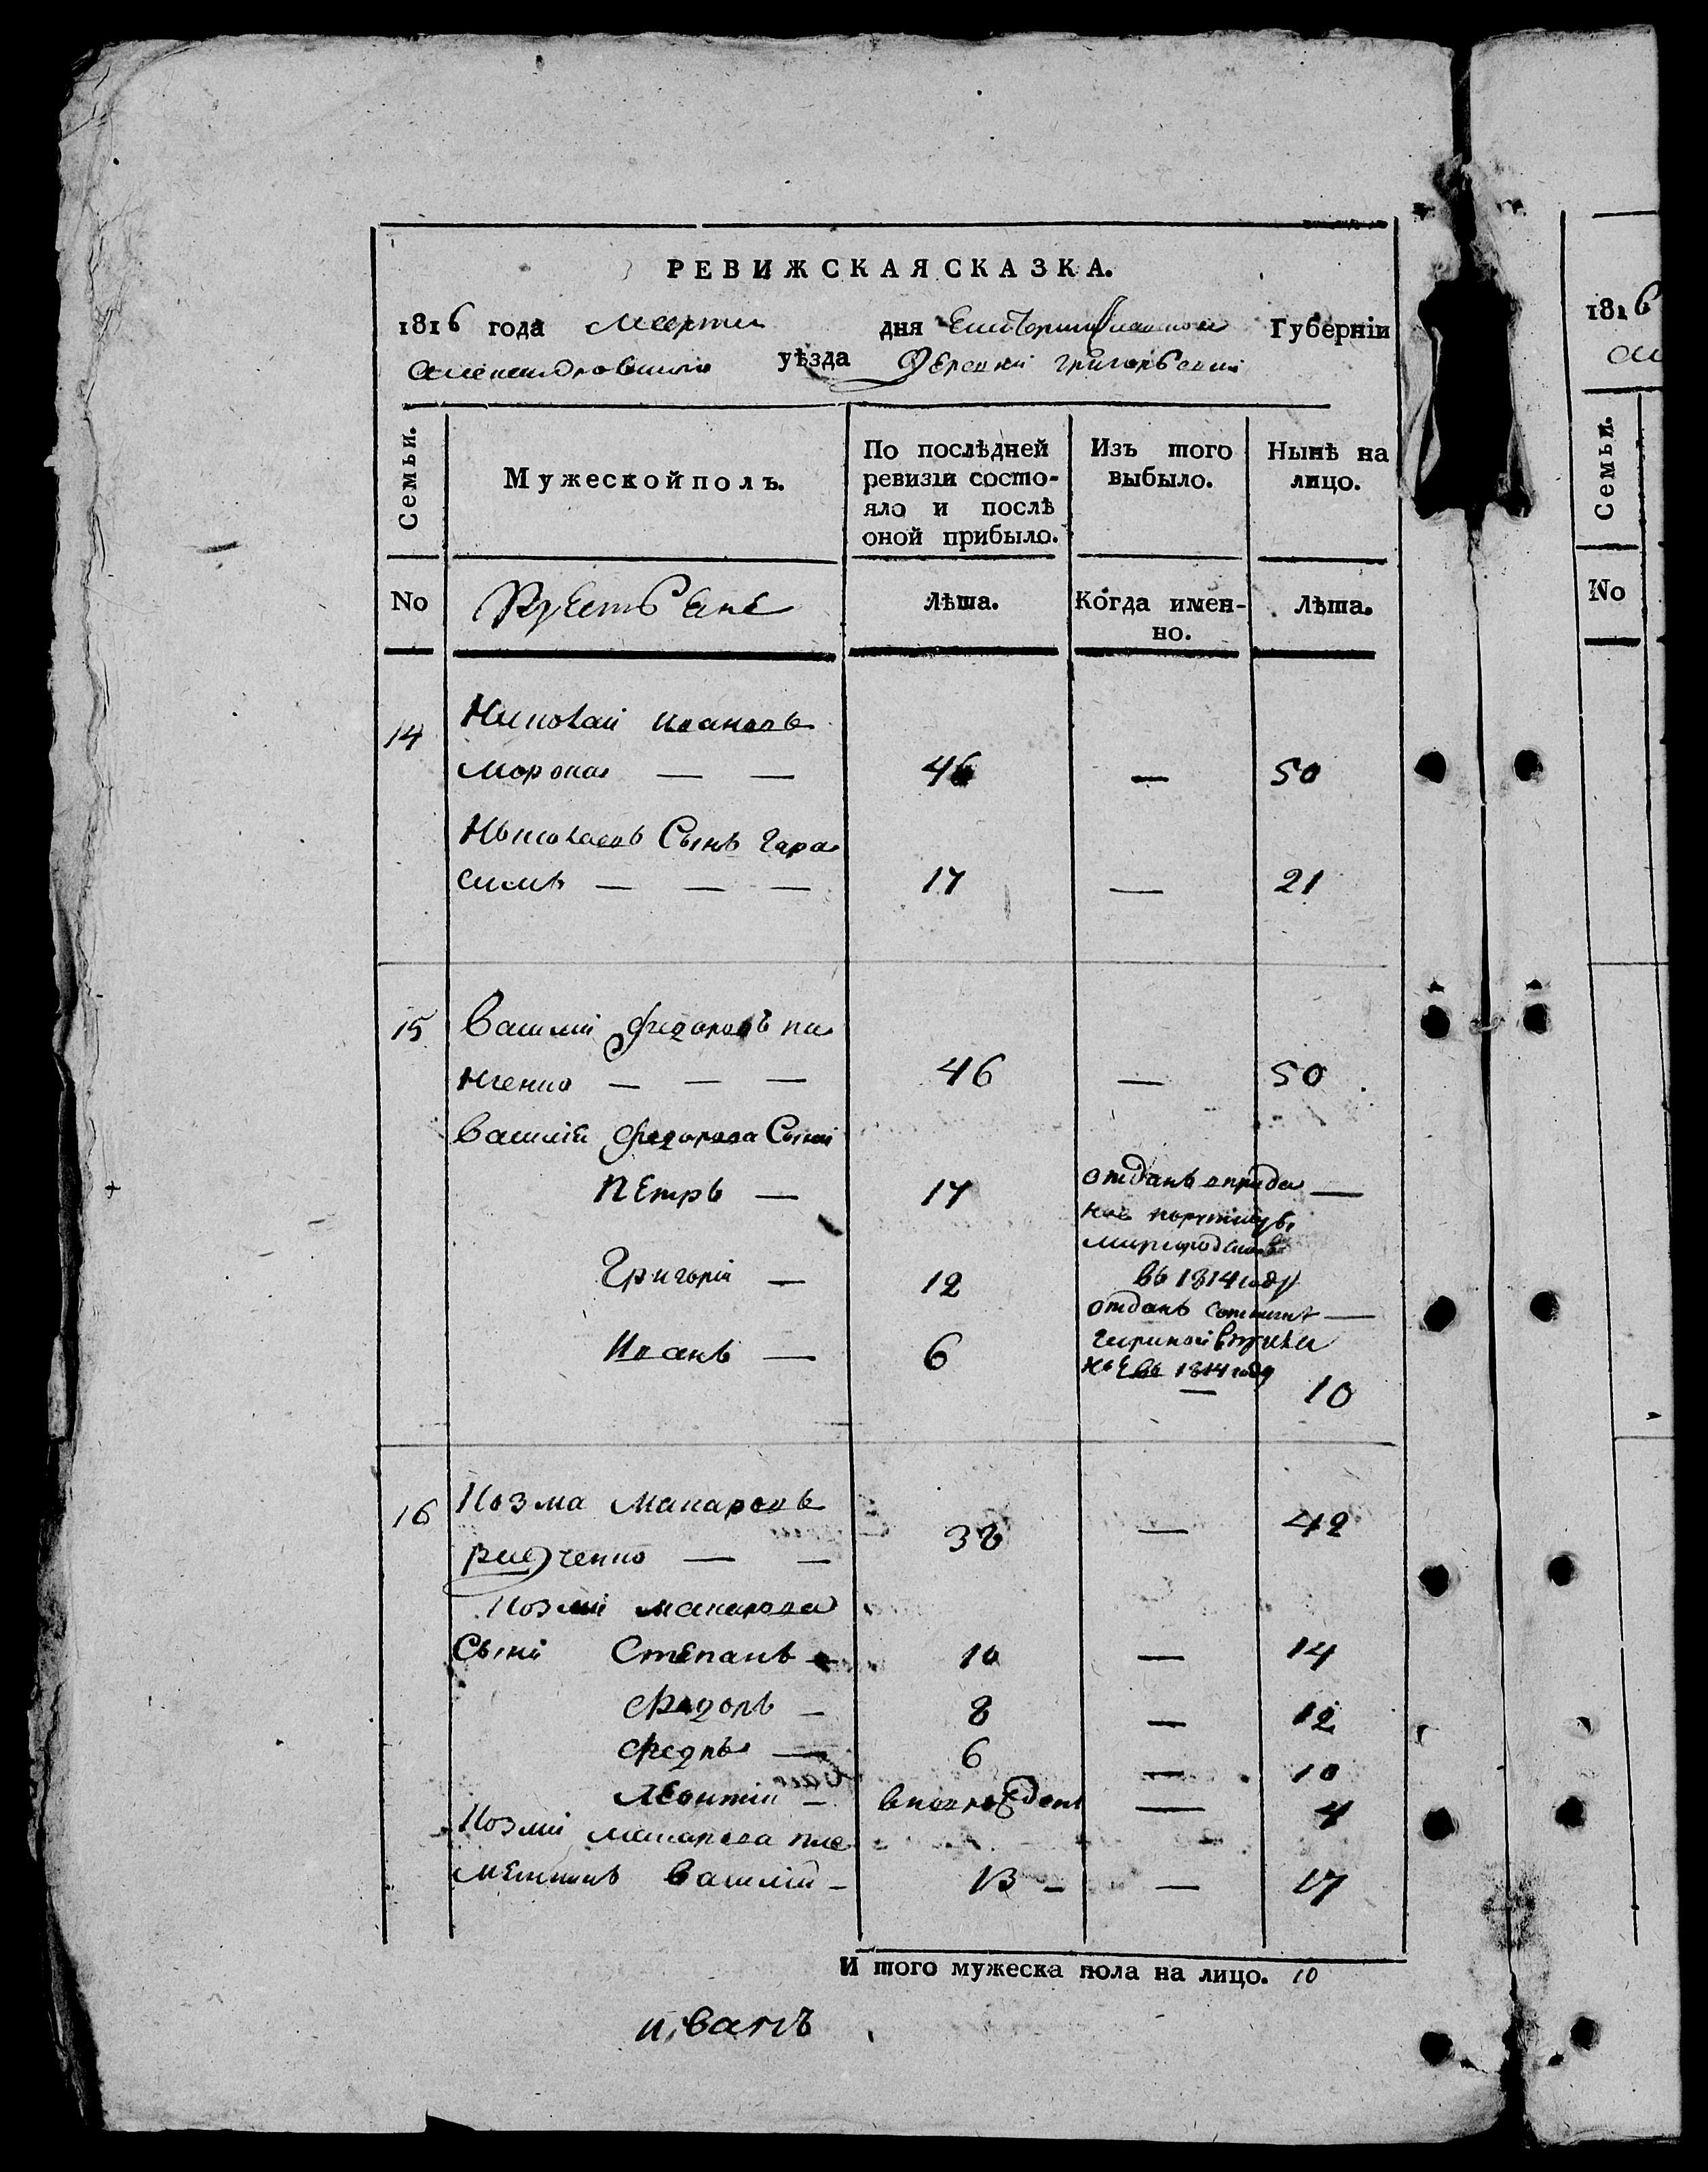 РЕВИЖСКАЯ СКАЗКА.
1816 года Марта дня Екатеринославской Губерніи
Александровскаго уѣзда Деревни Григорьевки
Семьи.
Мужеской полъ.
По послѣдней ревизіи состо-
яло и послѣ
оной прибыло.
Изъ того
выбыло.
Нынѣ на
лицо.
No Крестьяне лѣта. Когда имен-
но. Лѣта.
14 Николай Ивановъ
Морока — — 46 — 50
Николаевъ Сынъ Гара
симъ — — — 17 — 21
15 Василий Федоровъ
— — — 46 — 50
Василія Федорова Сыни
Петръ — 17 отданъ вприда —
ное
въ 1814 году
Григорій — 12 отданъ —
ное въ 1814 году
Иванъ — 6 — 10
16 Козма Макаровъ
— — 38 — 42
Козми Макарова
Сыни Степанъ — 10 — 14
Федоръ — 8 — 12
— 6 — 10
Леонтій — вноврожденъ — 4
Козми Макарова пле
менникъ Василій — 13 — — 17
И того мужеска пола на лицо. 10
иванъ
1816
Семьи.
No